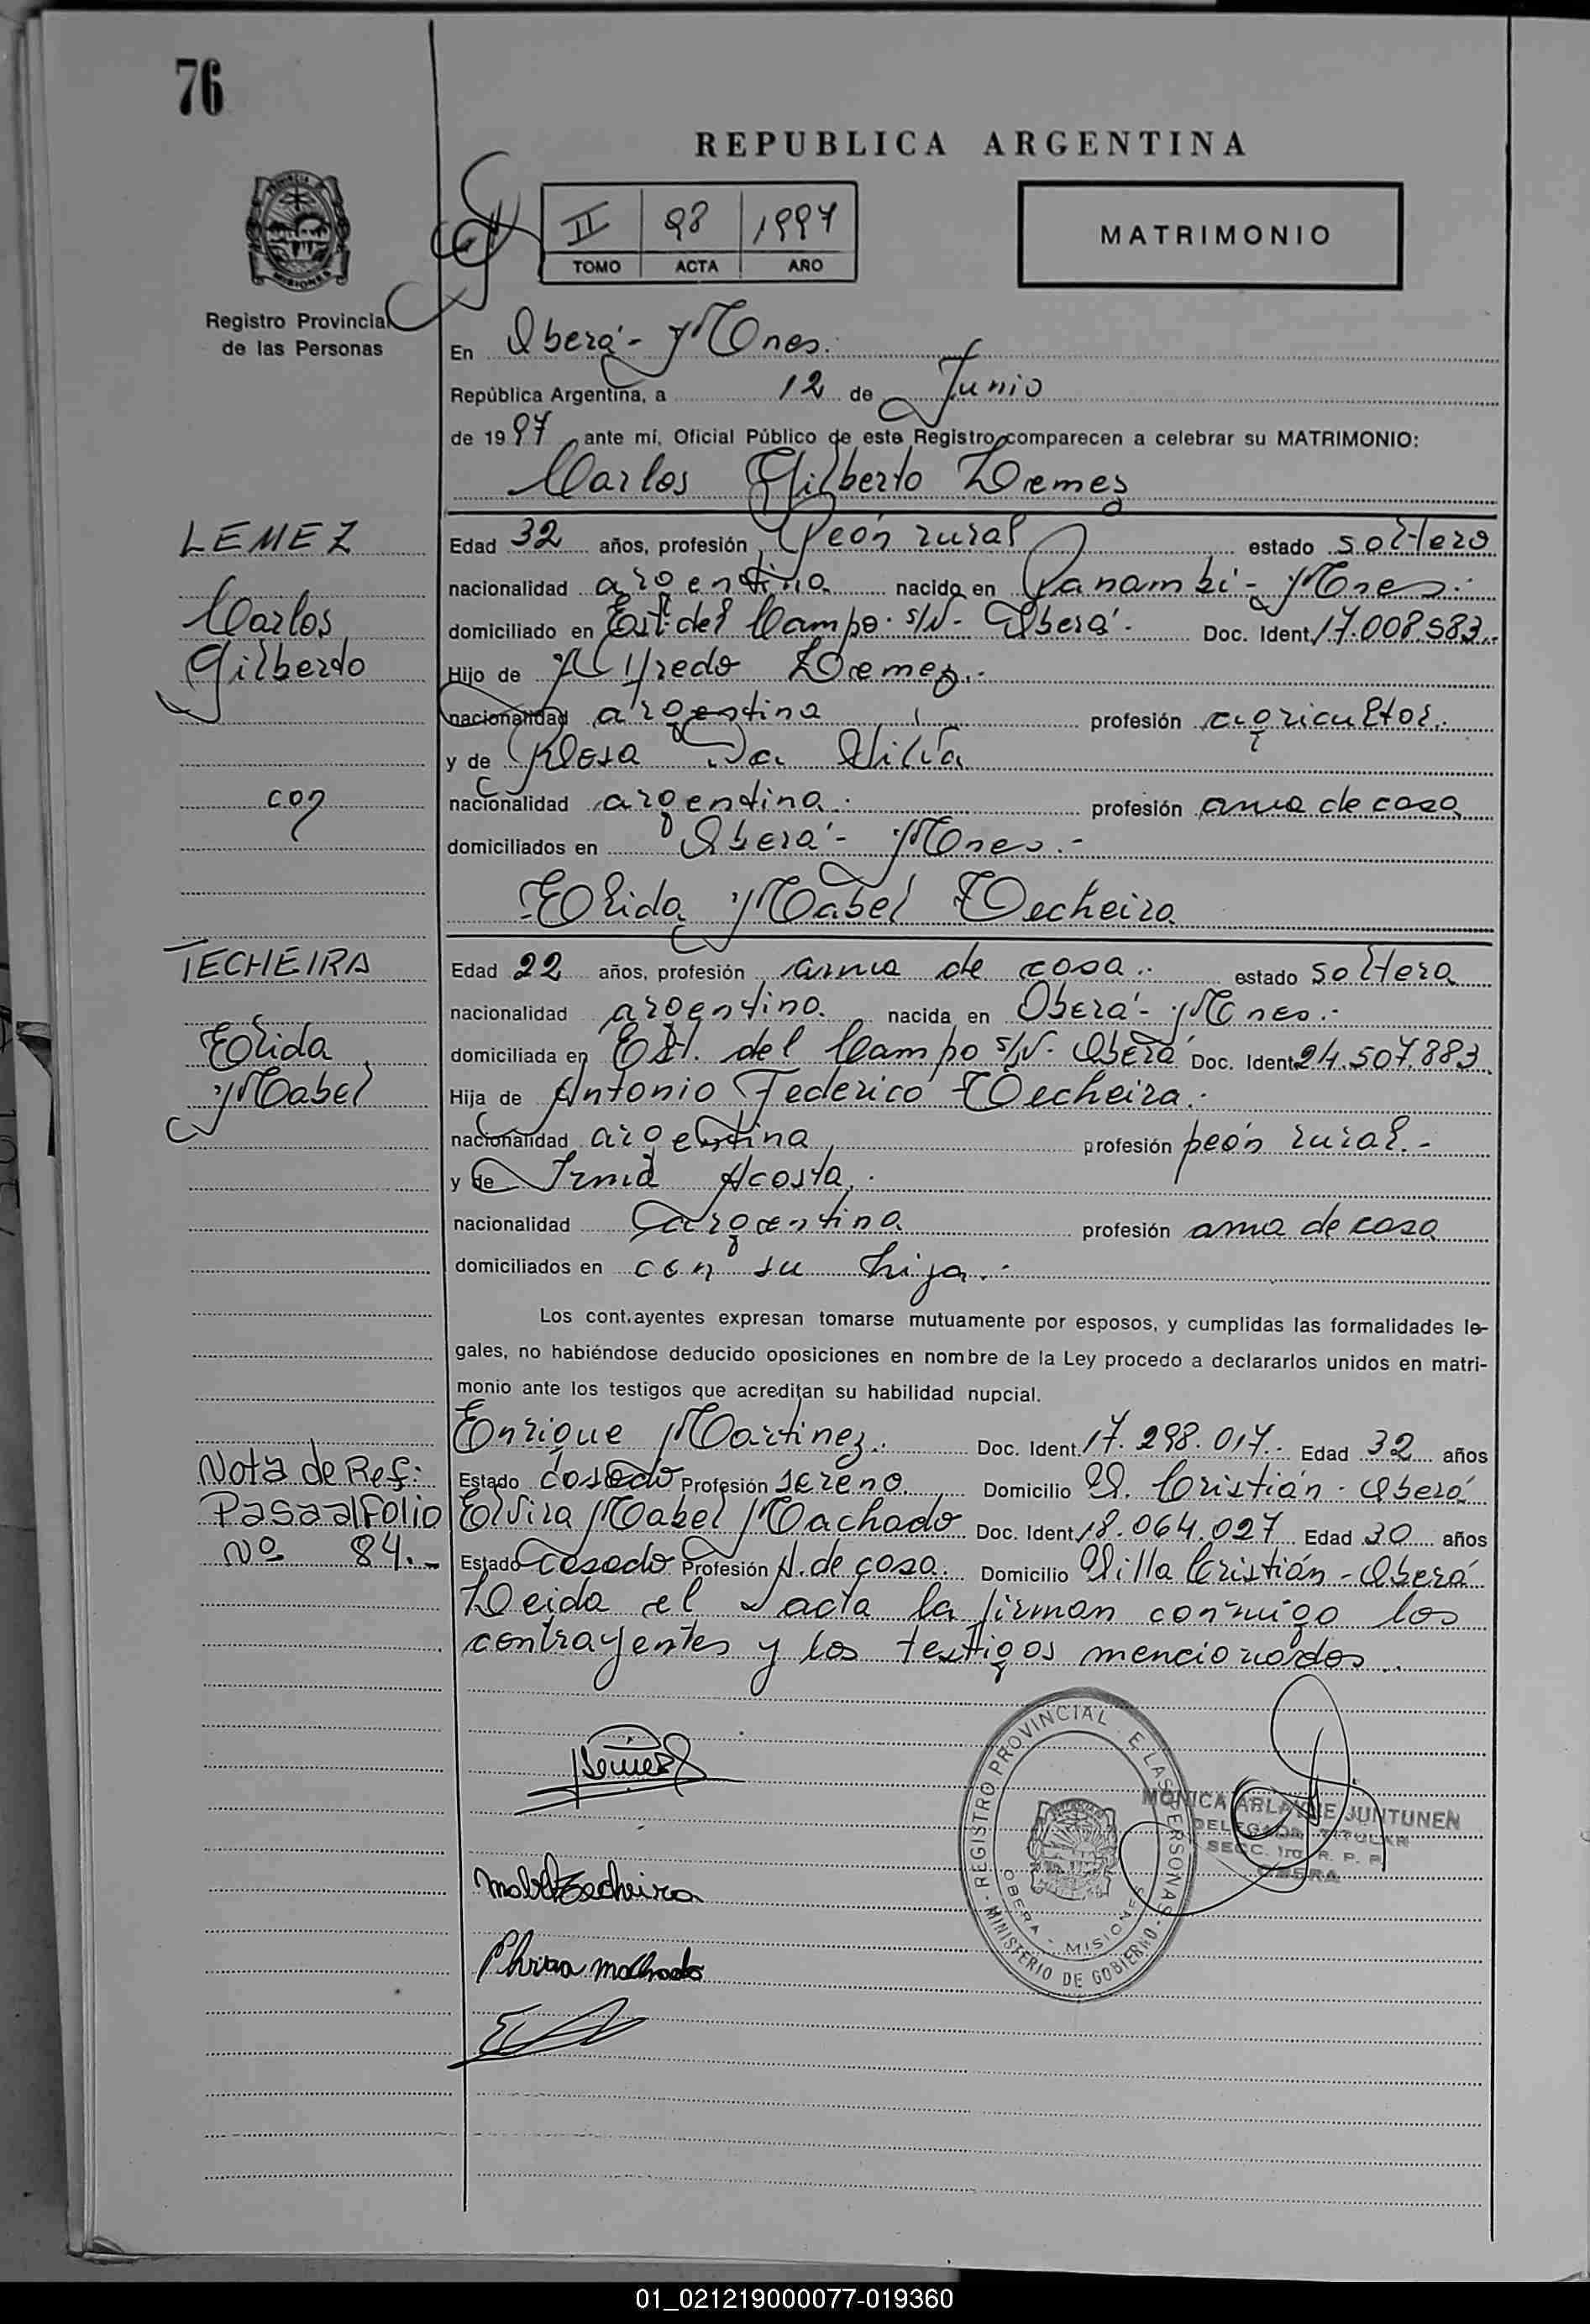 76
REPUBLICA ARGENTINA
II 98 1997
TOMO ACTA AÑO
MATRIMONIO
PROVINCIA
MISIONES
Registro Provincial
de las Personas
En Oberá - Mnes.
República Argentina, a 12 de Junio
de 1997 ante mí, Oficial Público de este Registro comparecen a celebrar su MATRIMONIO:
Carlos Gilberto Lemez
LEMEZ
Edad 32 años, profesión Peón rural estado soltero
nacionalidad argentina nacido en Panambí - Mnes.
Carlos
domiciliado en Est. del Campo s/N - Oberá - Doc. Ident. 17.008.583.
Gilberto
Hijo de Alfredo Lemez.
nacionalidad argentina profesión agricultor.
y de Rosa Da Silva
con
nacionalidad argentina. profesión ama de casa
domiciliados en Oberá - Mnes.-
Elida Mabel Techeira
TECHEIRA
Edad 22 años, profesión ama de casa. estado soltera
nacionalidad argentina. nacida en Oberá - Mnes.-
Elida
domiciliada en Est. del Campo s/N - Oberá Doc. Ident 24.507.883.
Mabel
Hija de Antonio Federico Techeira.-
nacionalidad argentina profesión peón rural.-
y de Irma Acosta.
nacionalidad argentina profesión ama de casa
domiciliados en con su hija.-
Los cont.ayentes expresan tomarse mutuamente por esposos, y cumplidas las formalidades le-
gales, no habiéndose deducido oposiciones en nombre de la Ley procedo a declararlos unidos en matri-
monio ante los testigos que acreditan su habilidad nupcial.
Enrique Martinez. Doc. Ident. 17.298.017. Edad 32 años
Nota de Ref:
Estado Casado Profesión sereno. Domicilio V. Cristián - Oberá
Pasa al Folio
Elvira Mabel Machado Doc. Ident 18.064.027 Edad 30 años
Nº 84.-
Estado Casado Profesión A. de casa. Domicilio Villa Cristián - Oberá
Leida el acta la firman conmigo los
contrayentes y los testigos mencionados.
Lemez
REGISTRO PROVINCIAL E LAS PERSONAS
MINISTERIO DE GOBIERNO
OBERA - MISIONES
MONICA ARLAYNE JUNTUNEN
DELEGADA TITULAR
SECC. 1ra. R. P. P.
OBERA
Mabel Techeira
Elvira Machado
01_021219000077-019360